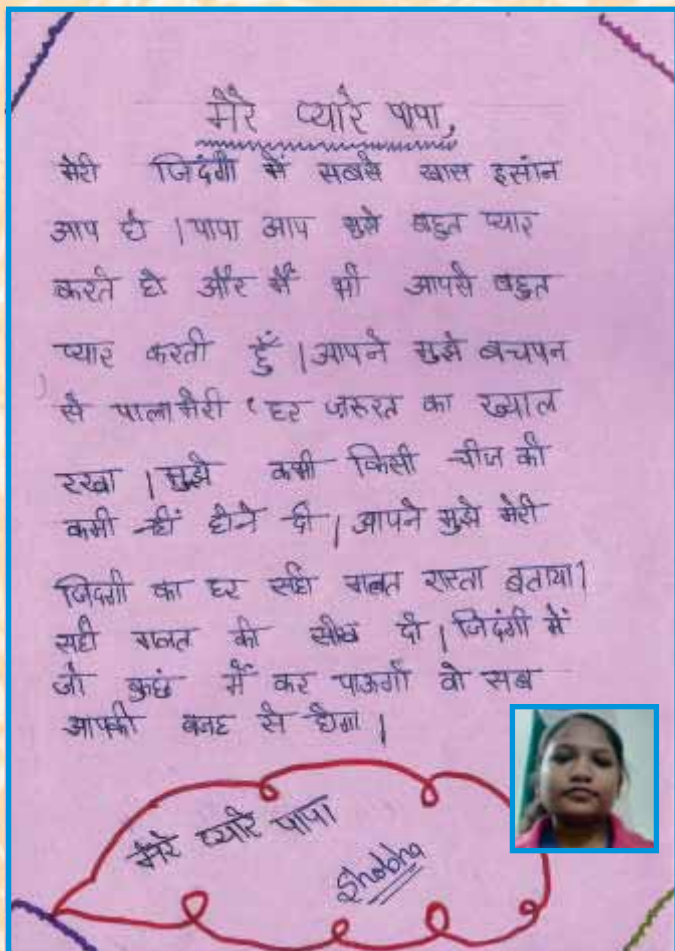 मेरे प्यारे पापा,
मेरी जिदंगी में सबसे खास इसांन
आप हो । पापा आप मुझे बहुत प्यार
करते हो और मैं भी आपसे बहुत
प्यार करती हूँ । आपने मुझे बचपन
से पाला मेरी हर जरूरत का ख्याल
रखा । मुझे कभी किसी चीज की
कमी नहीं होने दी । आपने मुझे मेरी
जिदगी का हर सही गलत रास्ता बताया।
सही गलत की सीख दी । जिदंगी में
जो कुछं मैं कर पाऊगी वो सब
आपकी वजह से होगा ।
मेरे प्यारे पापा
Shobha